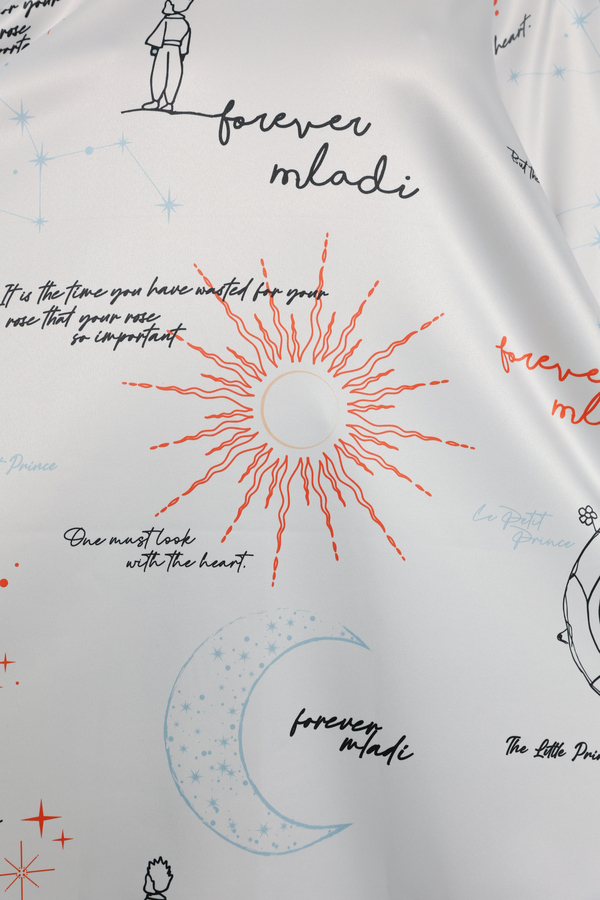 or your
rose
heart.
But the
forever
mladi
It is the time you have wasted for your
rose that your rose
so important
foreve
ml
Prince
Le Petit
Prince
One must look
with the heart.
forever
mladi
The Little Prin